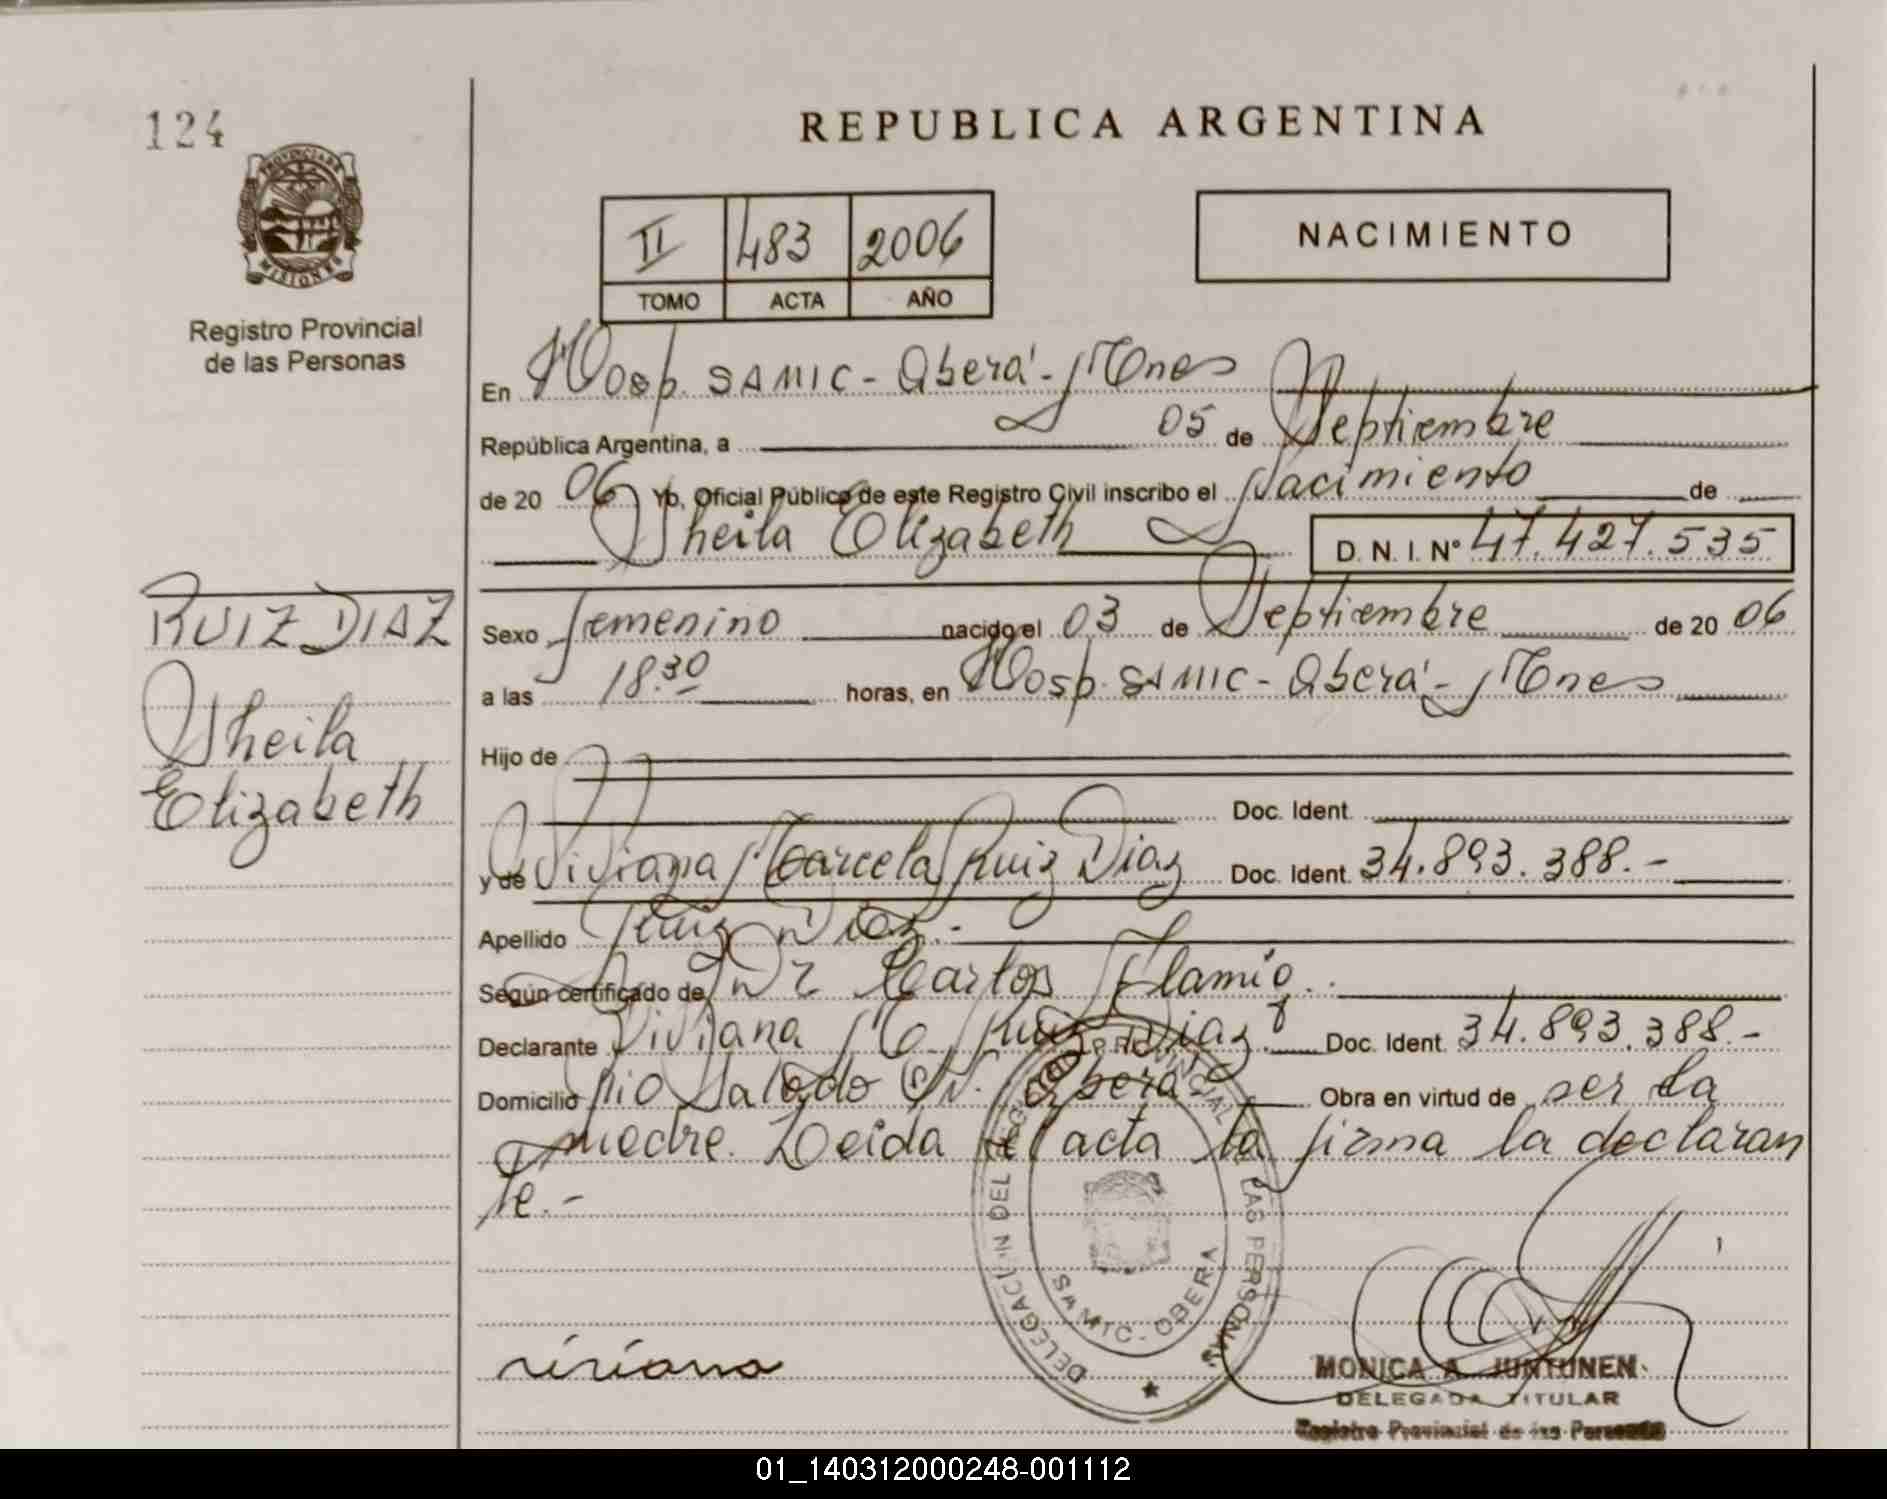 124
REPUBLICA ARGENTINA
PROVINCIA DE
MISIONES
Registro Provincial
de las Personas
II 483 2006
TOMO ACTA AÑO
NACIMIENTO
En Hosp. SAMIC - Oberá - Mnes
República Argentina, a 05 de Septiembre
de 20 06 Yo, Oficial Público de este Registro Civil inscribo el Nacimiento de
Sheila Elizabeth D. N. I. Nº 47.427.535
RUIZ DIAZ
Sheila
Elizabeth
Sexo femenino nacido el 03 de Septiembre de 20 06
a las 18.30 horas, en Hosp. SAMIC - Oberá - Mnes
Hijo de
Doc. Ident.
y de Viviana Marcela Ruiz Diaz Doc. Ident. 34.893.388.-
Apellido Ruiz Diaz.-
Según certificado de Dr Carlos
Declarante Viviana M Ruiz Diaz Doc. Ident. 34.893.388.-
Domicilio Rio Salado S/N. Oberá Obra en virtud de ser la
madre. Leida el acta la firma la declaran
te.-
DELEGACION DEL REGISTRO PROVINCIAL DE LAS PERSONAS
SAMIC - OBERA
viviana
MONICA A. JUNTUNEN
DELEGADA TITULAR
Registro Provincial de las Personas
01_140312000248-001112